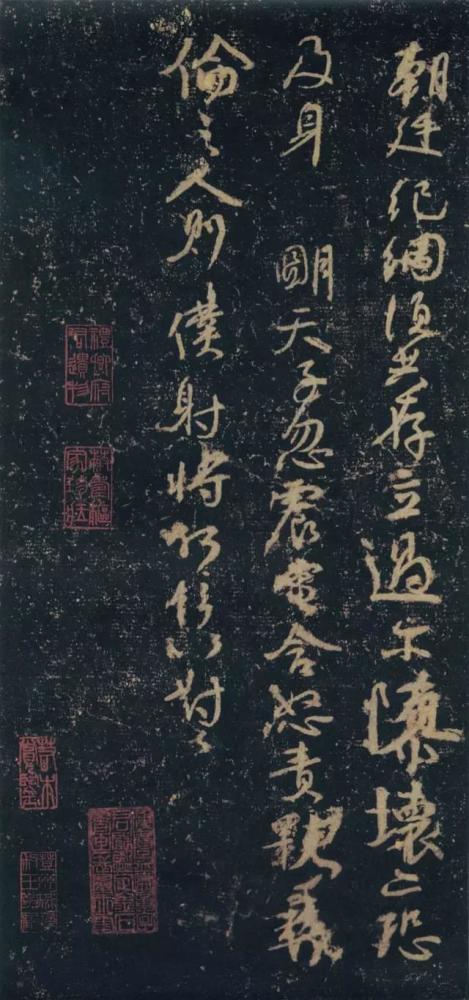 朝廷紀綱須共存立過尔隳壞亦恐
及身 明天子忽震電含怒責斁彝
倫之人則僕射將何辭以對